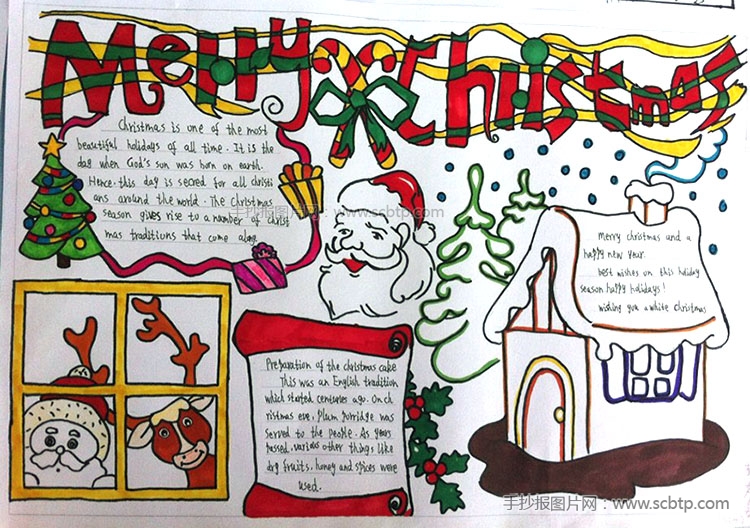 Merry Christmas
Christmas is one of the most
beautiful holidays of all time. It is the
day when God's sun was born on earth.
Hence, this day is secred for all christi
ans around the world. The christmas
season gives rise to a number of christ
mas traditions that come along
手抄报图片网：www.scbtp.com
merry christmas and a
happy new year.
best wishes on this holiday
season happy holidays!
wishing you a white christmas
Preparation of the christmas cake
This was an English tradition
which started centuries ago. On ch
ristmas eve, Plum porridge was
served to the people. As years
passed, various other things like
dry fruits, honey and spices were
used.
手抄报图片网：www.scbtp.com